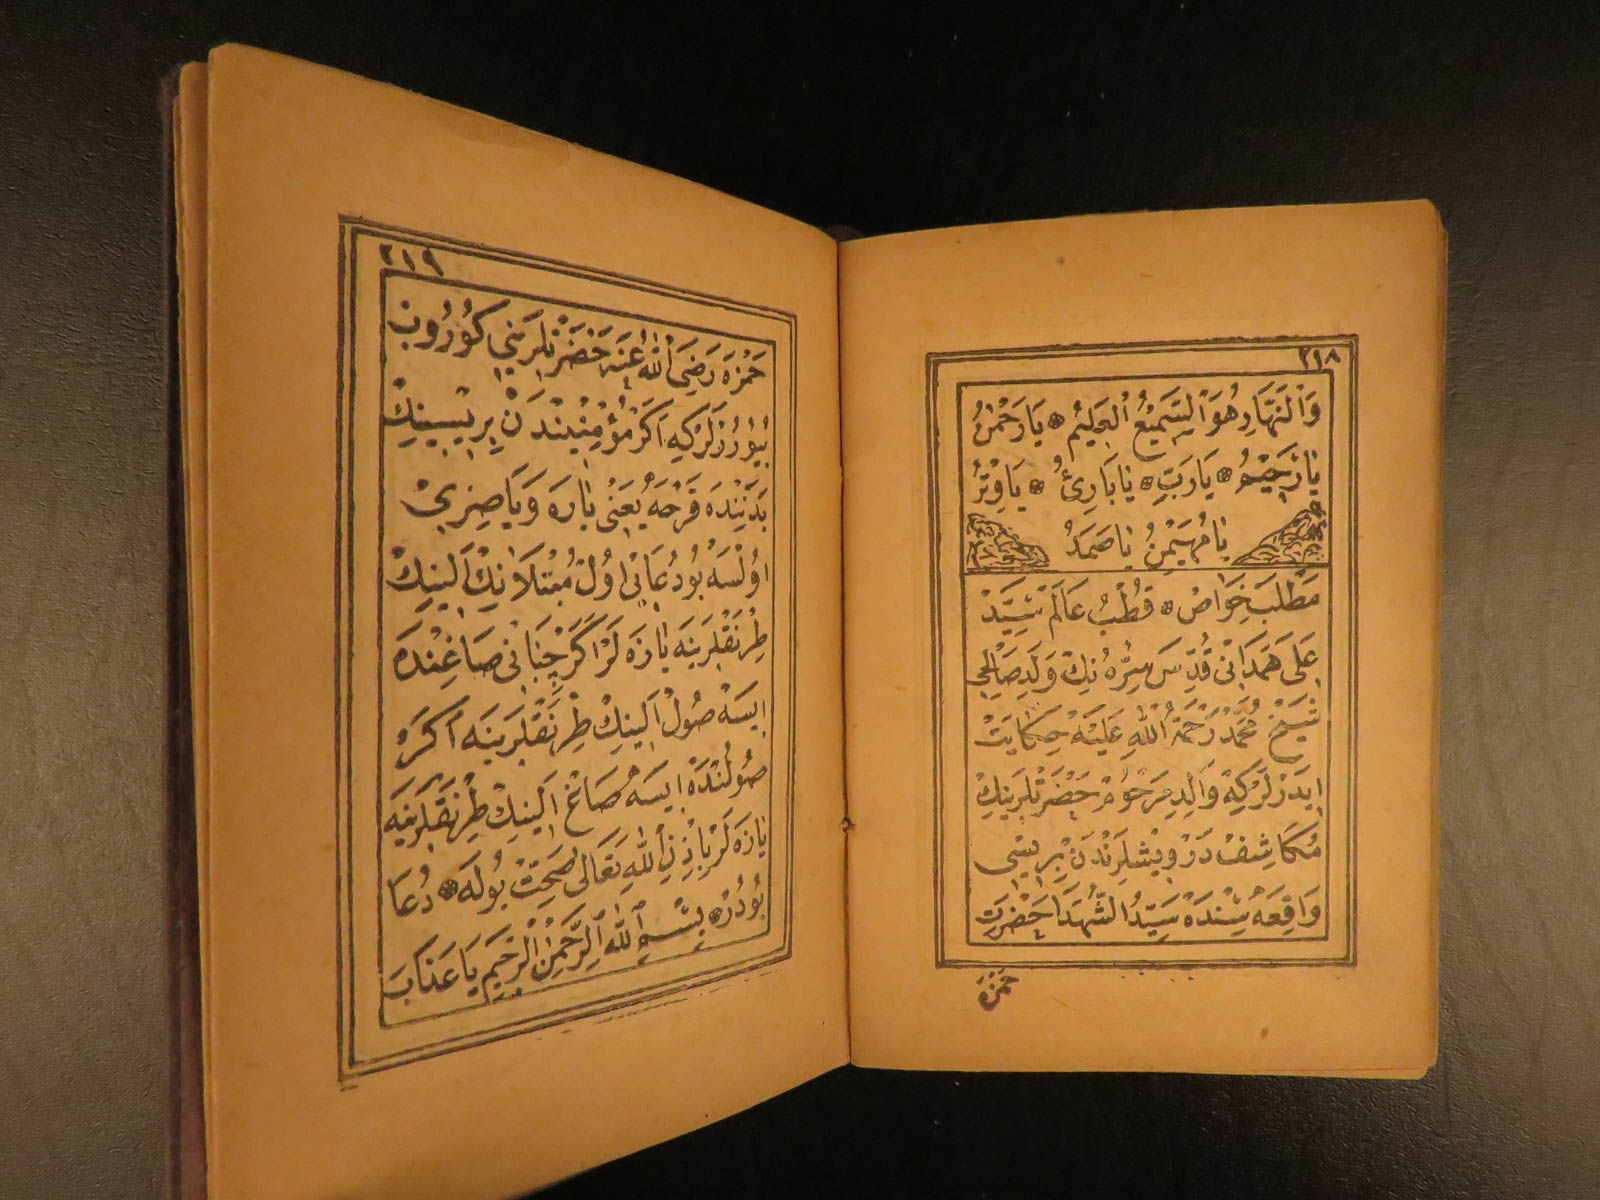 ٢١٨
وَالنَّهَارِ وَهُوَ السَّمِيعُ الْعَلِيمُ ۞ يَا رَحْمٰنُ
يَا رَحِيمُ ۞ يَا رَبِّ ۞ يَا بَارِئُ ۞ يَا وِتْرُ
يَا مُهَيْمِنُ يَا صَمَدُ
مَطْلَبَ خَوَاصْ ۞ قُطْبُ عَالَمْ سَيِّدْ
عَلِى هَمَدَانِى قُدِّسَ سِرُّهُ نِكْ وَلَدِ صَالِحِى
شَيْخْ مُحَمَّدْ رَحْمَةُ اللّٰهِ عَلَيْهْ حِكَايَتْ
اِيدَرْلَرْكِهْ وَالِدِ مَرْحُومْ حَضْرَتْلَرِينِكْ
مُكَاشِفْ دَرْوِيشْلَرِنْدَنْ بِرِيسِى
وَاقِعَهْ سِنْدَهْ سَيِّدُ الشُّهَدَا حَضْرَتِ
حَمْزَهْ
٢١٩
حَمْزَه رَضِىَ اللّٰهُ عَنْهُ حَضْرَتْلَرِينِى كُورُوبْ
بُيُورُرْلَرْكِهِ اَكَرْ مُؤْمِنِينْدَنْ بِرِيسِينِكْ
بَدَنِنْدَهْ قَرْحَهْ يَعْنِى يَارَهْ وَيَا صِزِى
اُولْسَهْ بُودُعَايِى اُولْ مُبْتَلَانِكْ اَلِينِكْ
طِرْنَقْلَرِينَهْ يَازَهْ لَرْ اَكَرْ جِبَانِى صَاغِنْدَهْ
اِيسَهْ صُولْ اَلِينِكْ طِرْنَقْلَرِينَهْ اَكَرْ
صُولُنْدَهْ اِيسَهْ صَاغْ اَلِينِكْ طِرْنَقْلَرِينَهْ
يَازَهْ لَرْ بِاِذْنِ اللّٰهِ تَعَالَى صِحَّتْ بُولَهْ ۞ دُعَا
بُودُرْ ۞ بِسْمِ اللّٰهِ الرَّحْمٰنِ الرَّحِيمِ يَا